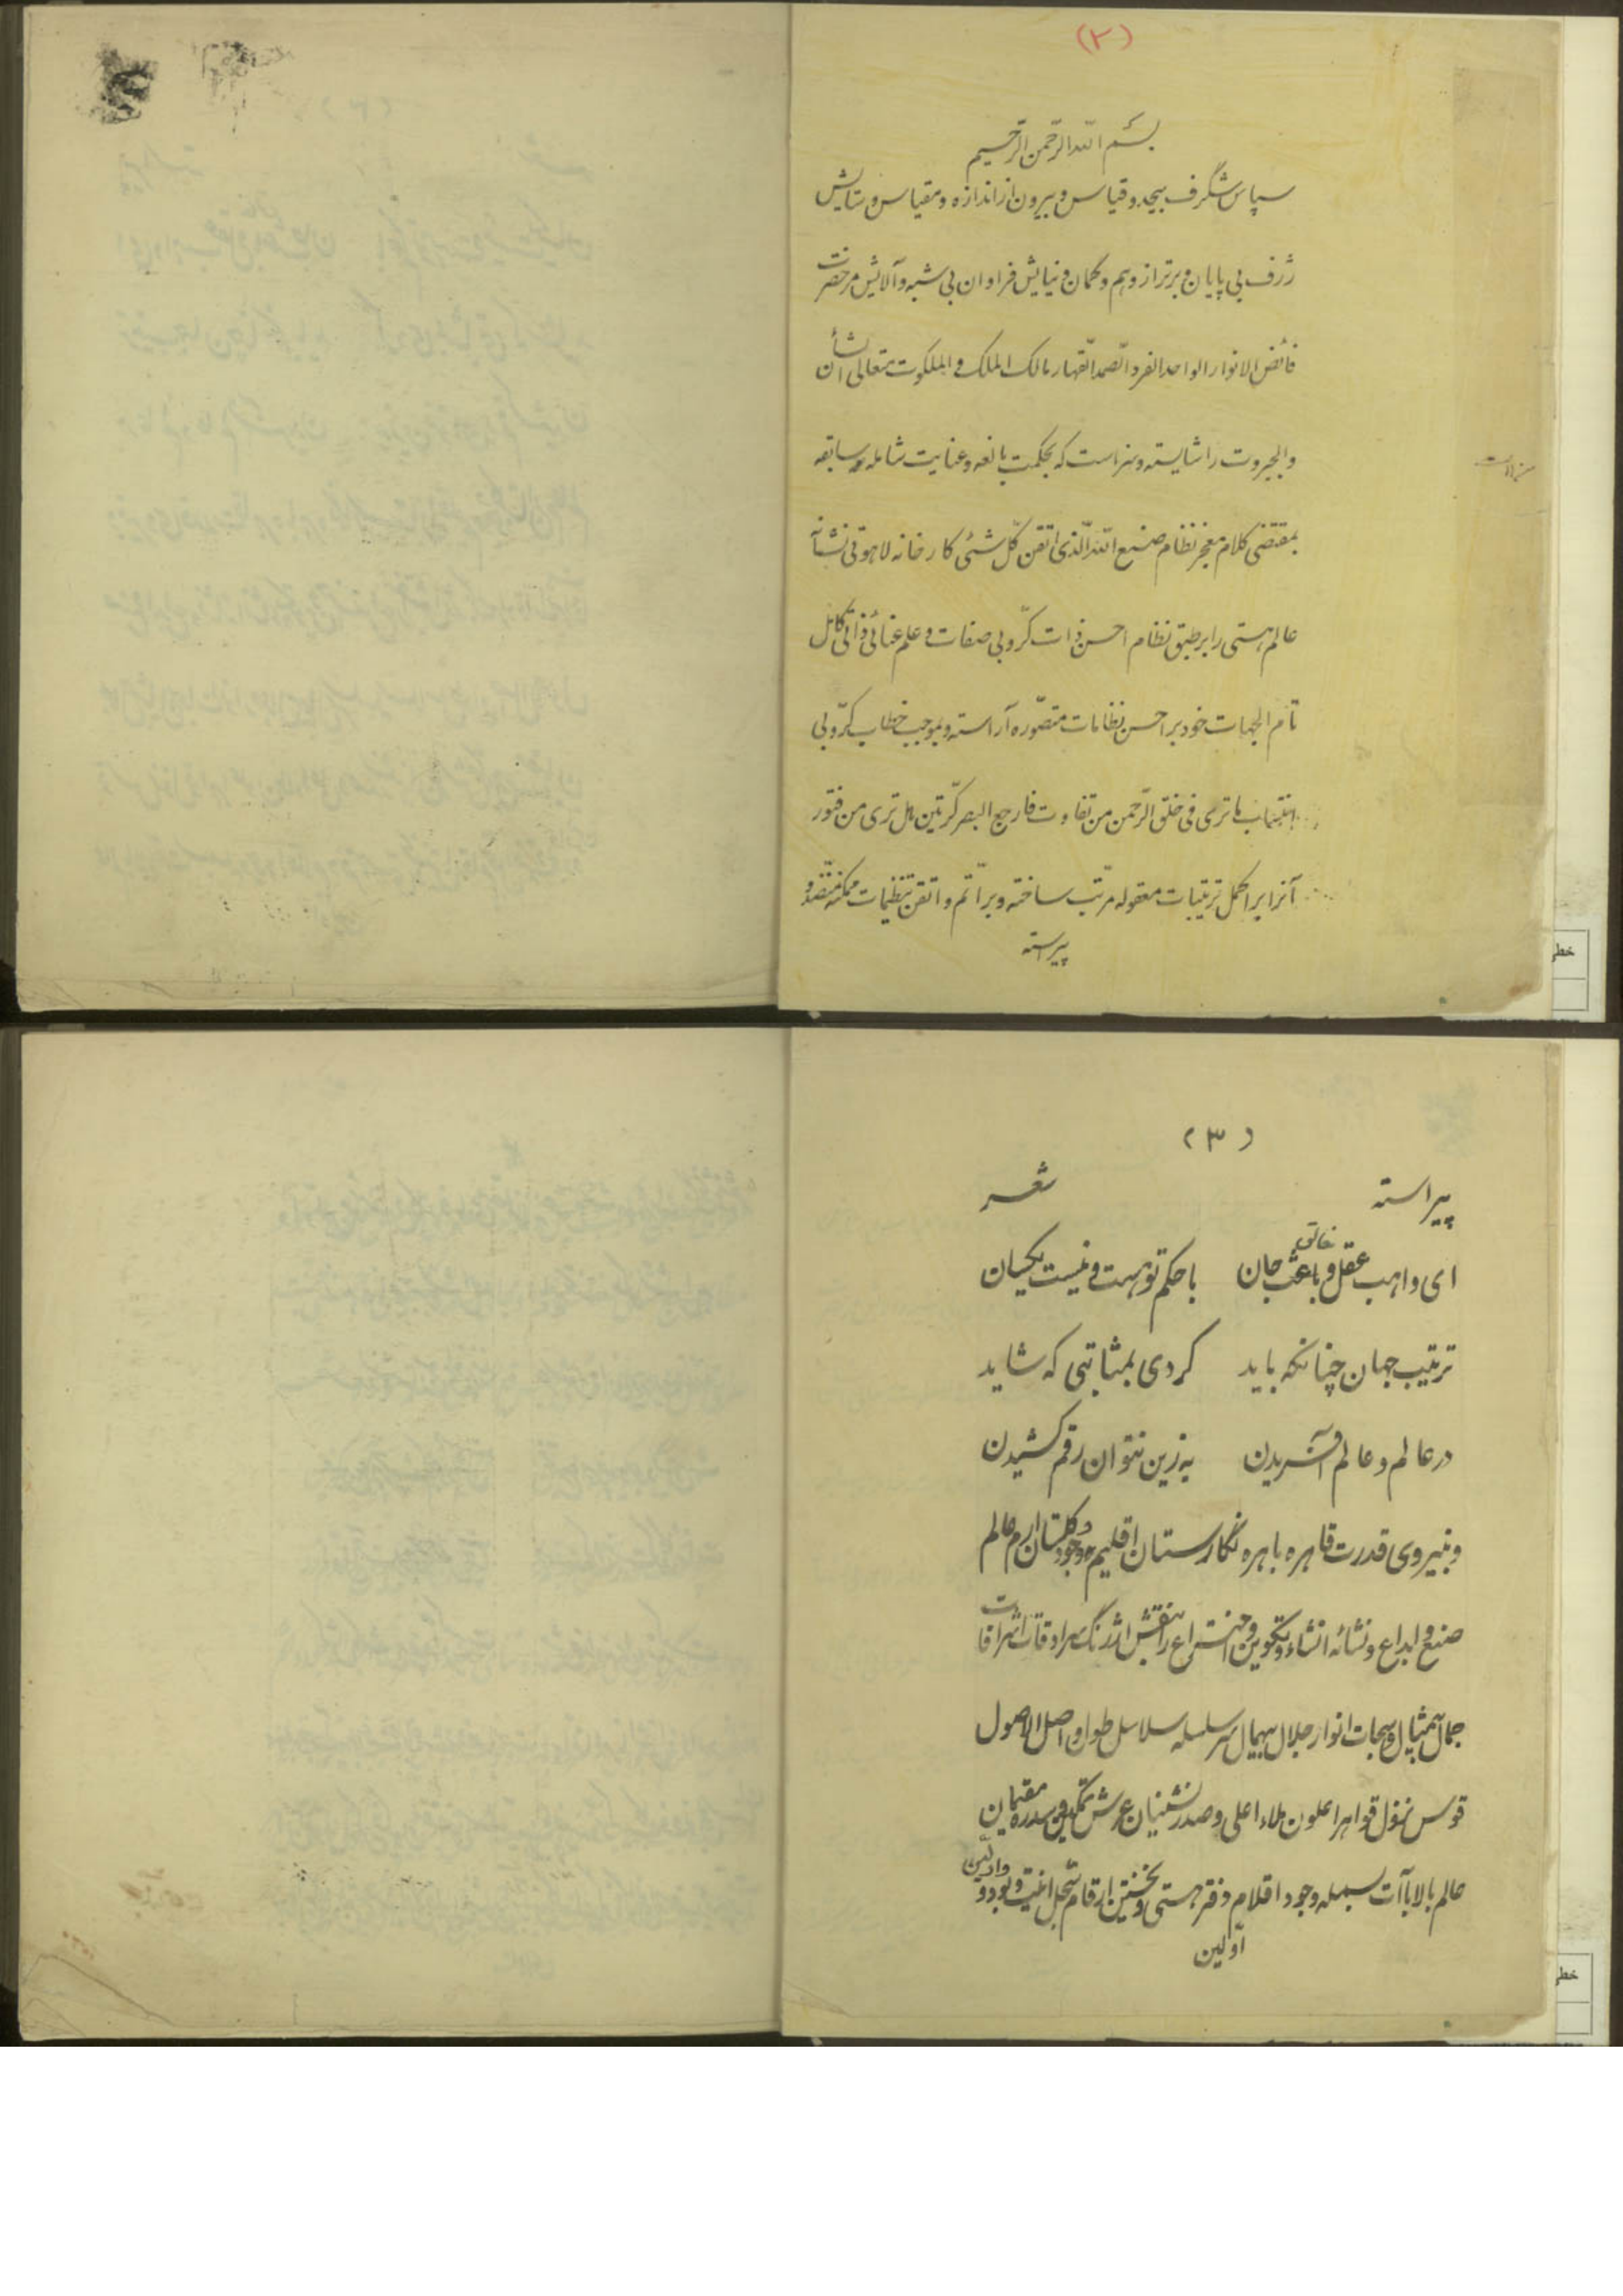 (۲)
بسم الله الرّحمن الرّحیم
سپاس شگرف بیحد و قیاس و بیرون از اندازه و مقیاس و ستایش
ژرف بی پایان و برتر از وهم و گمان و نیایش فراوان بی شبه و آلایش مر حضرت
فائض الانوار الواحد الفرد الصّمد القّهار مالک الملک و الملکوت متعالی الشأن
والجبروت را شایسته و سزاست که بحکمت بالغه و عنایت شامله سابقه
بمقتضی کلام معجز نظام صنع الله الّذی اتقن کلّ شئی کارخانه لاهوتی نشأنه
عالم هستی را بر طبق نظام احسن ذات کرّوبی صفات و علم عنائی ذاتی کامل
تام الجهات خود بر احسن نظامات متصّوره آراسته و بموجب خطاب کرّوبی
انتساب ما تری فی خلق الرّحمن من تفاوت فارجع البصر کرّتین هل تری من فتور
آنرا بر اکمل ترتیبات معقوله مرتّب ساخته و بر اتّم و اتقن تنظیمات ممکنه
پیراسته
خطی
(۳)
پیراسته شعر
خالق
ای واهب عقل و باعث جان با حکم تو هست و نیست یکسان
ترتیب جهان چنانکه باید کردی بمثابتی که شاید
در عالم و عالم آفریدن به زین نتوان رقم کشیدن
و بنیروی قدرت قاهره باهره نگارستان اقلیم وجود و گلستان ارم عالم
صنع و ابداع و نشائه انشاء و تکوین و اختراع را بنقش ارژنگ سرادقات اشراقات
جمال بیمثال و سبحات انوار جلال بیهمال سر سلسله سلاسل طول و اصل الاصول
قوس نزول قواهر اعلون ملاء اعلی و صدر نشینان عرش تمکین و سدره مقیمان
عالم بالا باآت بسمله وجود اقلام دفتر هستی و نخستین ارقام سّجل و بود و
اوّلین
خطی